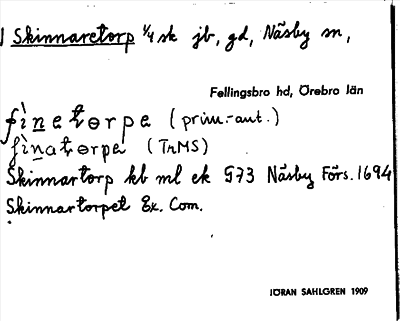 Skinnaretorp ¼ sk jb, gd, Näsby sn,
Fellingsbro hd, Örebro län
fìnetorpe (prim.-aut.)
fìnatorpe (TrMS)
Skinnartorp kb ml ek G73 Näsby Förs. 1694
Skinnartorpet Ex. Com.
JÖRAN SAHLGREN 1909